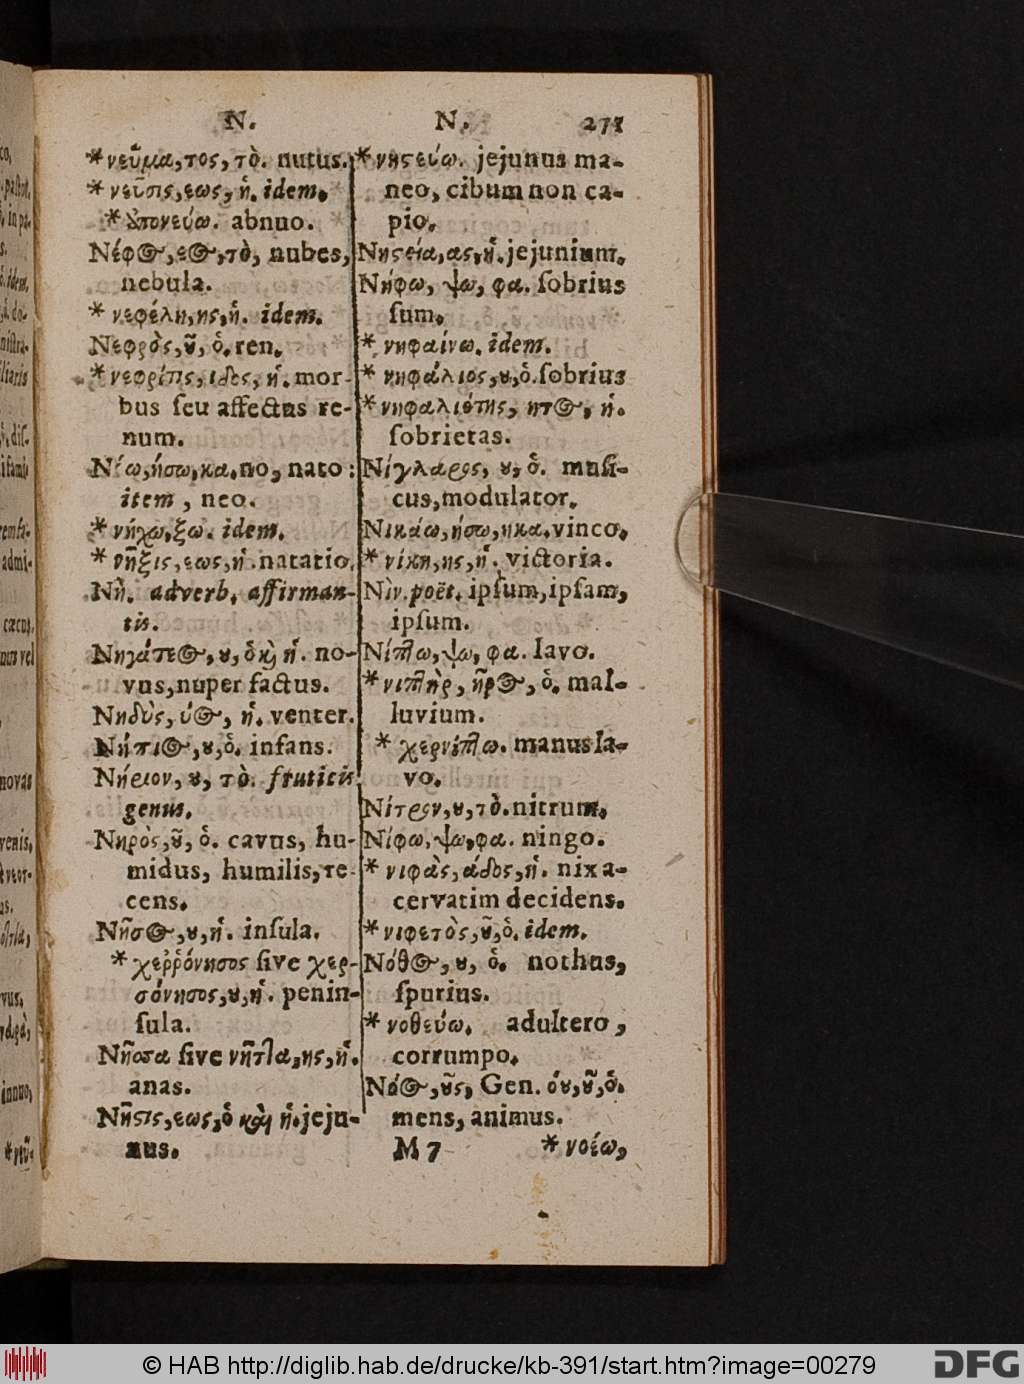 N. N. 277
*νεῦμα,τος,τὸ. nutus.
*νεῦσις,εως,ἡ. idem.
*ἀπονεύω. abnuo.
Νέφος,εος,τὸ, nubes,
nebula.
*νεφέλη,ης,ἡ. idem.
Νεφρὸς,οῦ,ὁ.ren.
*νεφρίτις,ιδος,ἡ.mor-
bus ſeu affectus re-
num.
Νέω,ήσω,κα.no, nato:
item, neo.
*νήχω,ξω. idem.
*νῆξις,εως,ἡ.natatio.
Νὴ. adverb. affirman-
tis.
Νηγάτεος,ου,ὁκαὶ ἡ. no-
vus,nuper factus.
Νηδὺς,ύος, ἡ. venter.
Νήπιος,ου,ὁ. infans.
Νήριον,ου, τὸ. fruticis
genus.
Νηρὸς,οῦ, ὁ. cavus, hu-
midus, humilis,re-
cens.
Νῆσος,ου,ἡ. inſula.
*χεῤῥόνησος ſive χερ-
σόνησος,ου,ἡ. penin-
ſula.
Νῆσσα ſive νῆττα,ης,ἡ.
anas.
Νῆστις,εως,ὁ καὶ ἡ.jeju-
nus.
*νηστεύω. jejunus ma-
neo, cibum non ca-
pio.
Νηστεία,ας,ἡ.jejunium.
Νήφω, ψω, φα. ſobrius
ſum.
*νηφαίνω. idem.
*νηφάλιος,ου,ὁ.ſobrius
*νηφαλιότης, ητος, ἡ.
ſobrietas.
Νίγλαρος, ου, ὁ. muſi-
cus,modulator.
Νικάω,ήσω,ηκα.vinco.
*νίκη,ης,ἡ. victoria.
Νὶν.poët.ipſum,ipſam,
ipſum.
Νίπτω,ψω, φα. lavo.
*νιπτὴρ, ῆρος, ὁ. mal-
luvium.
*χερνίπτω. manus la-
vo.
Νίτρον,ου,τὸ.nitrum.
Νίφω,ψω,φα. ningo.
*νιφὰς,άδος,ἡ. nix a-
cervatim decidens.
*νιφετὸς,οῦ,ὁ.idem.
Νόθος,ου, ὁ. nothus,
ſpurius.
*νοθεύω. adultero,
corrumpo.
Νόος,οῦς, Gen. όου,οῦ,ὁ.
mens, animus.
M 7 *νοέω,
© HAB http://diglib.hab.de/drucke/kb-391/start.htm?image=00279
DFG